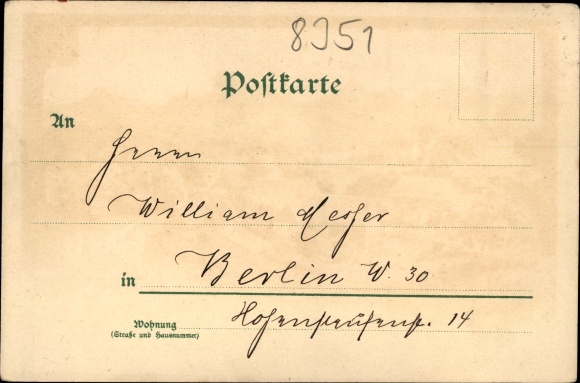 8351
Postkarte
An
Herrn
William
in Berlin W. 30
Wohnung Hohenstaufenstr. 14
(Straße und Hausnummer)